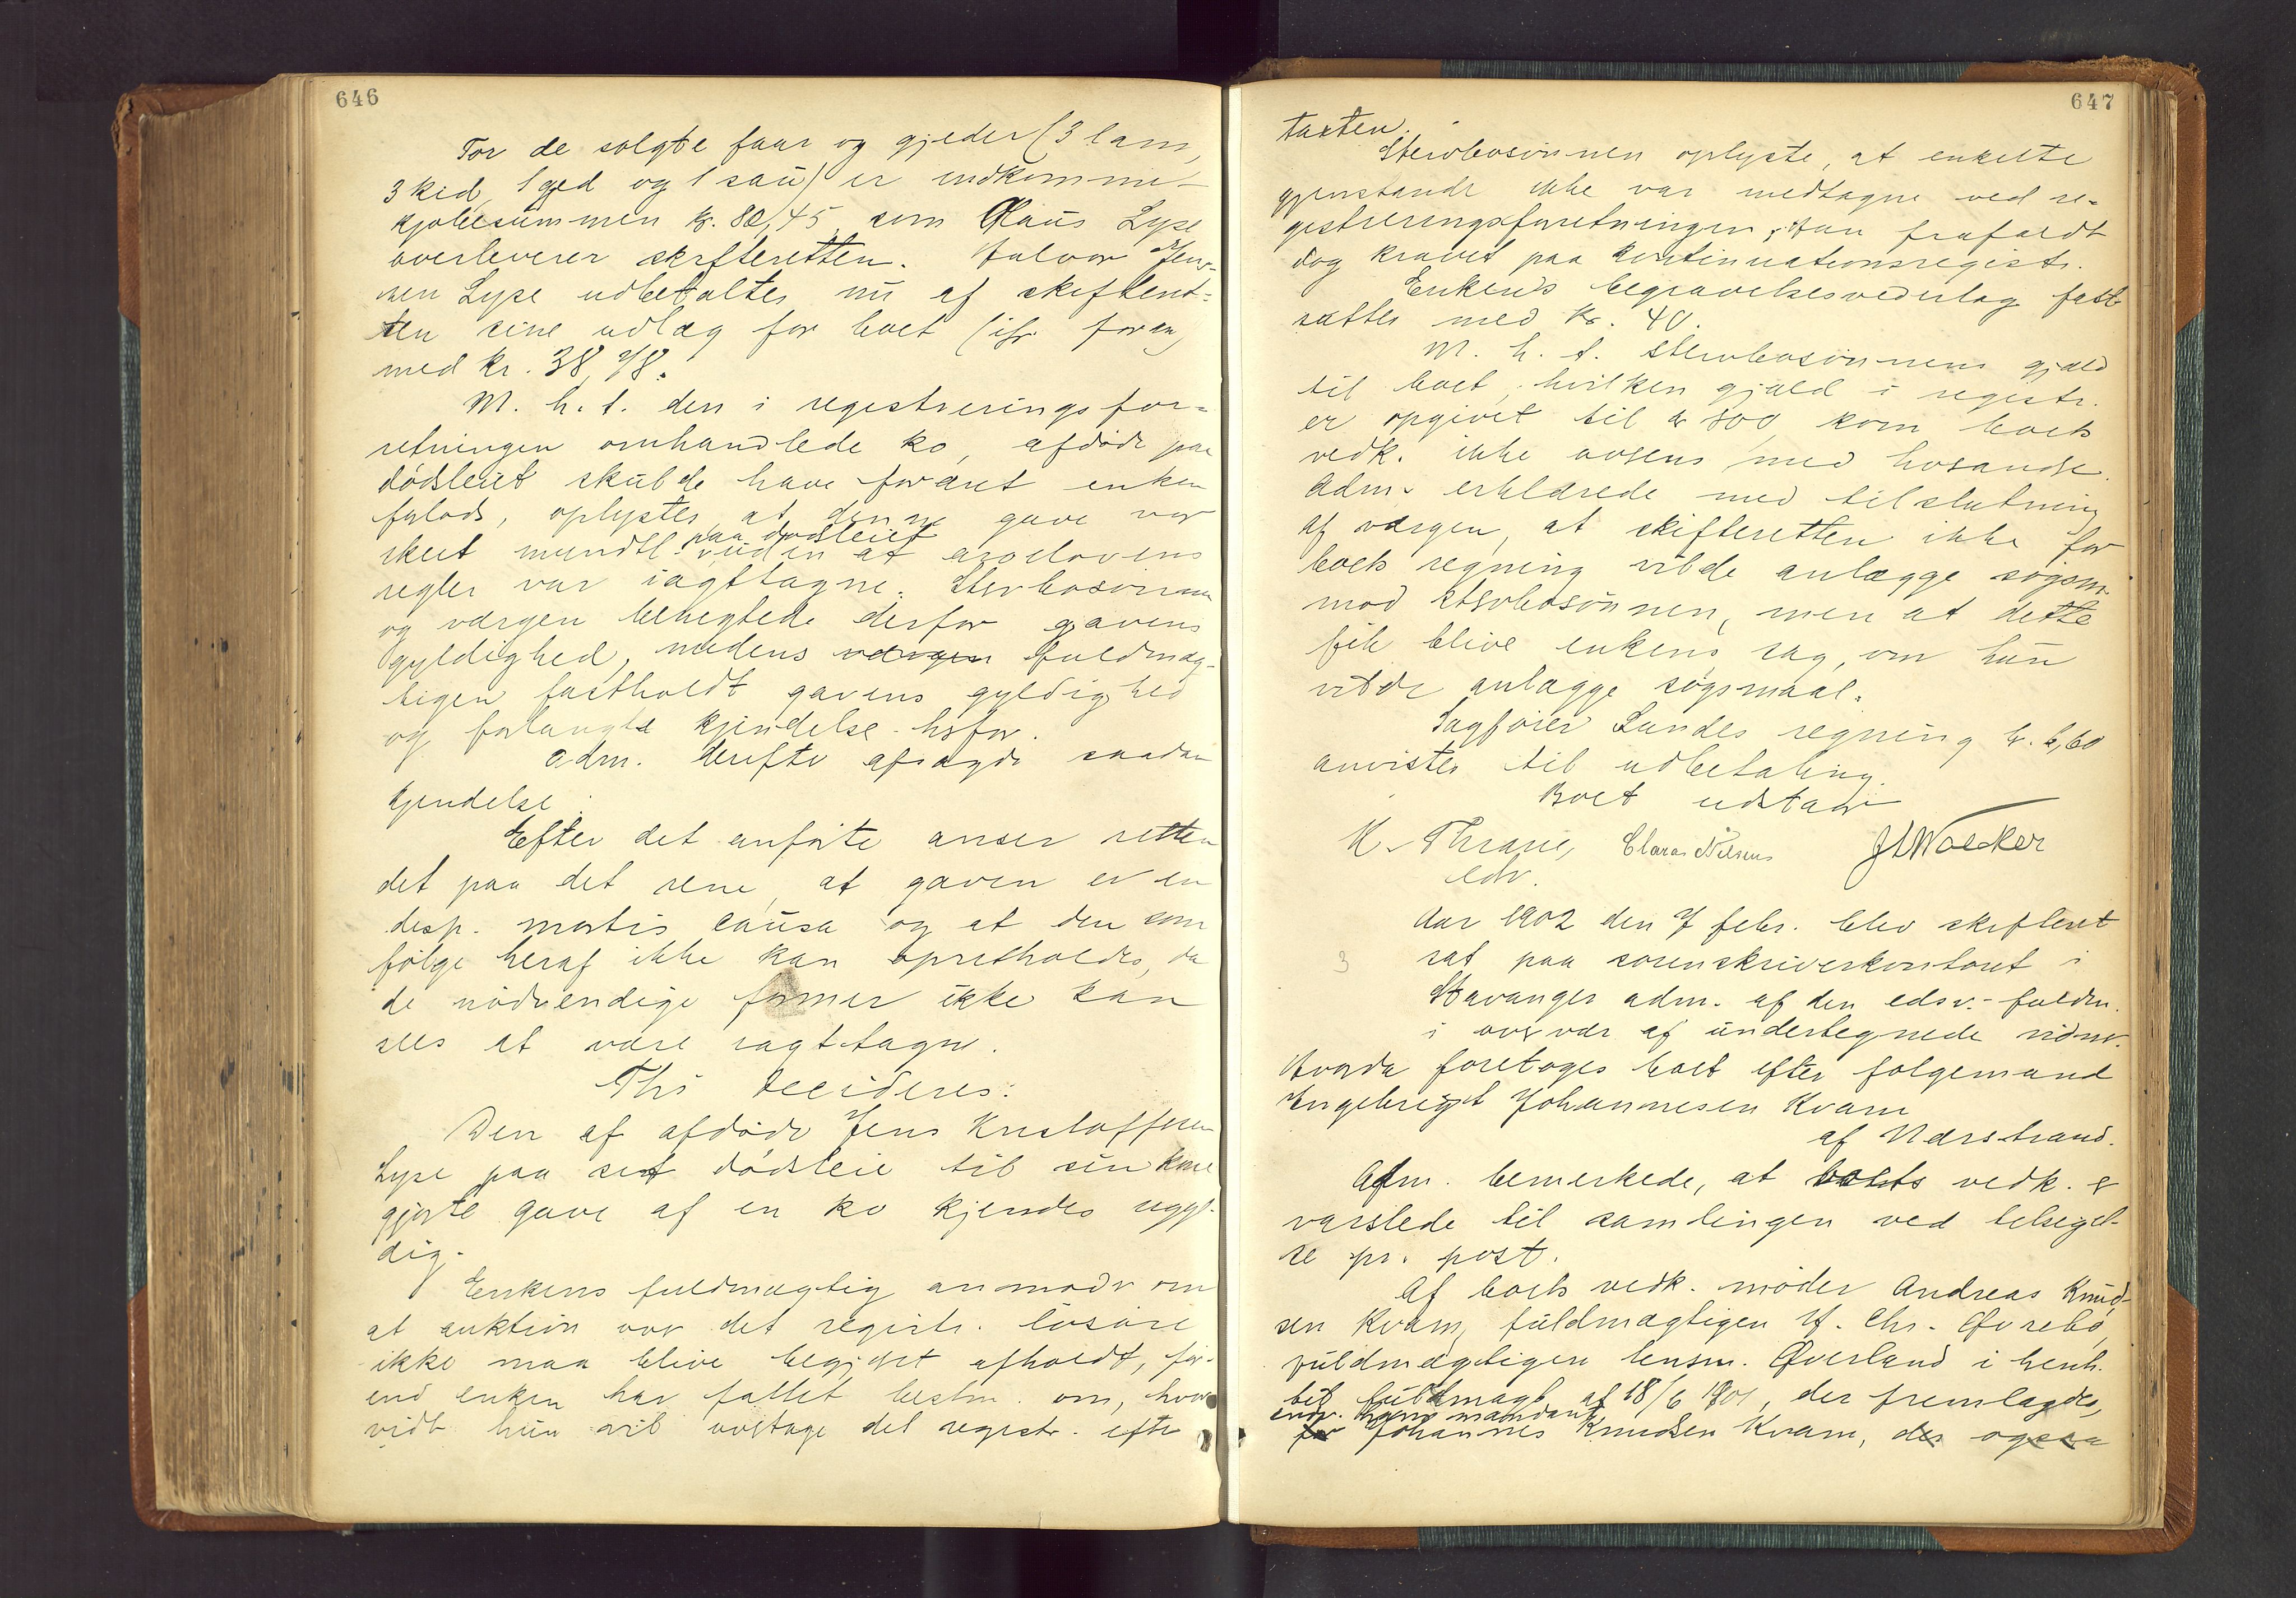 646
For de solgte faar og gjeder (3 lam,
3 kid, 1 gjed og 1 sau) er indkommet
kjøbesummen kr. 80,45, som Claus Lyse
overleverer skifteretten. Halvor Jen-
sen Lyse udbetaltes nu af skifteret-
ten sine udlæg for boet (ifr foran)
med kr. 38,78.
M. h. t. den i registreringsfor-
retningen omhandlede ko, afdøde paa
dødsleiet skulde have foræret enken
forlods, oplystes at denne gave var
skeet mundtl. paa dødsleiet uden at arvelovens
regler var iagttagne. Stervbosønnen
og værgen benegtede derfor gavens
gyldighed, medens værgen fuldmæg-
tigen fastholdt gavens gyldighed
og forlangte kjendelse hsfor.
Adm. derefter afsagde saadan
kjendelse:
Efter det anførte anser retten
det paa det rene, at gaven er en
disp. mortis causa og at den som
følge heraf ikke kan opretholdes, da
de nødvendige former ikke kan
sees at være iagttagne.
Thi decideres:
Den af afdøde Jens Kristoffersen
Lyse paa sit dødsleie til sin kone
gjorte gave af en ko kjendes ugyl-
dig.
Enkens fuldmægtig anmodede om
at auktion over det registr. løsøre
ikke maa blive begjært afholdt, før-
end enken har fattet bestm. om, hvor-
vidt hun vil overtage det registr. efter
647
taxten.
Stervbosønnen oplyste, at enkelte
gjenstande ikke var medtagne ved re-
gistreringsforretningen; han frafaldt
dog kravet paa kontinuationsregistr.
Enkens begravelsesvederlag fast-
sattes med kr. 40.
M. h. t. stervbosønnens gjæld
til boet, hvilken gjæld i registr.
er opgivet til kr 800, kom boets
vedk. ikke overens med hverandre.
Adm. erklærede med tilslutning
af værgen, at skifteretten ikke for
boets regning vilde anlægge søgsm.
mod stervbosønnen, men at dette
fik blive enkens sag, om hun
vilde anlægge søgsmaal.
Sagfører Lundes regning kr. 6,60
anvistes til udbetaling.
Boet udstaar
K. Thrane, Clara Nilsens
edv.
Aar 1902 den 7 febr. blev skifteret
3 sat paa sorenskriverkontoret i
Stavanger adm. af den edsv. fuldm.
i overvær af undertegnede vidner.
Hvorda foretoges boet efter følgemand
Engebregt Johannesen Kvam
af Nærstrand.
Adm. bemerkede, at boets vedk. er
varslede til samlingen ved tilsigel-
se pr. post.
Af boets vedk. møder Andreas Knud-
sen Kvam, fuldmægtigen H. Chr. Øvrebø,
fuldmægtigen lensm. Øverland i henh.
til fuldmagt af 18/6 1901, der fremlagdes,
endv. hans mandant
for Johannes Knudsen Kvam, der ogsaa